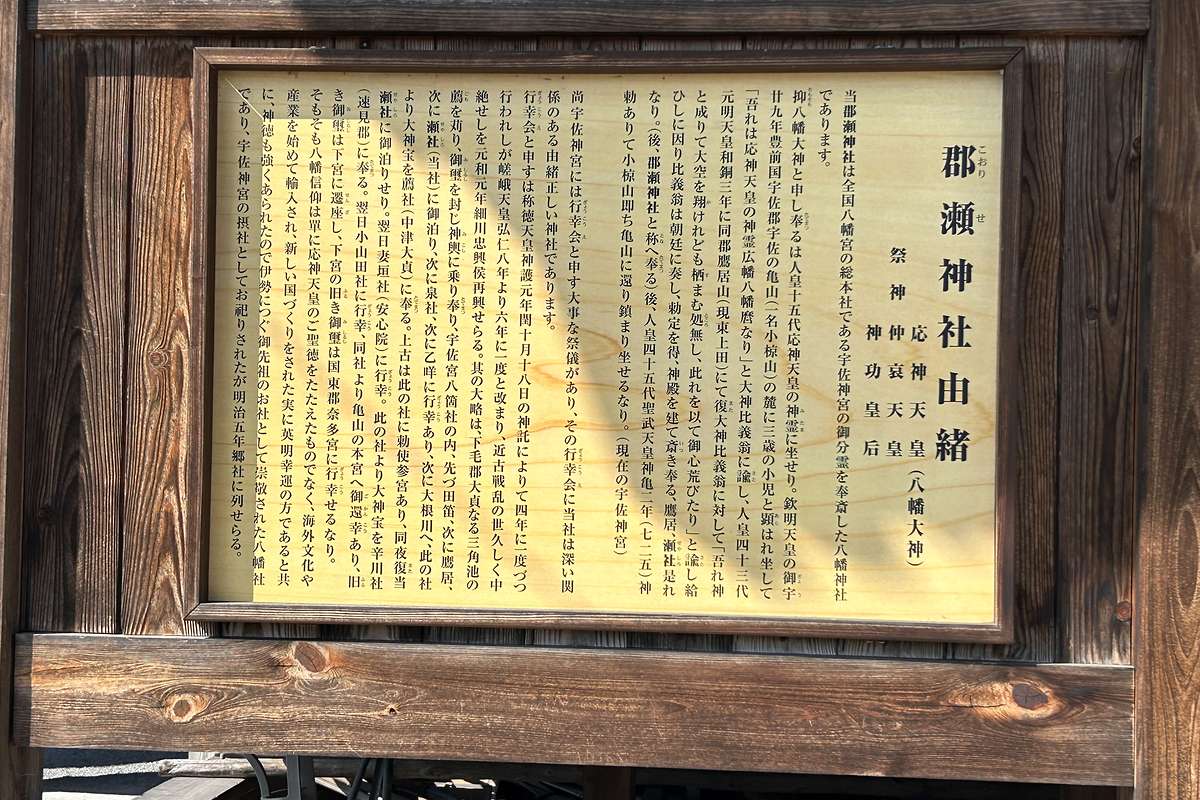 郡瀬神社由緒
祭神 応神天皇(八幡大神)
仲哀天皇
神功皇后
当郡瀬神社は全国八幡宮の総本社である宇佐神宮の御分霊を奉斎した八幡神社
であります。
抑八幡大神と申し奉るは人皇十五代応神天皇の神霊に坐せり。欽明天皇の御宇
廿九年豊前国宇佐郡宇佐の亀山(一名小椋山)の麓に三歳の小児と顕はれ坐して
「吾れは応神天皇の神霊広幡八幡麿なり」と大神比義翁に諭し、人皇四十三代
元明天皇和銅三年に同郡鷹居山(現東上田)にて復大神比義翁に対して「吾れ神
と成りて大空を翔けれども栖まむ処無し、此れを以て御心荒びたり」と諭し給
ひしに因り比義翁は朝廷に奏し、勅定を得、神殿を建て斎き奉る、鷹居、瀬社是れ
なり。(後、郡瀬神社と称へ奉る)後、人皇四十五代聖武天皇神亀二年(七二五)神
勅ありて小椋山即ち亀山に還り鎮まり坐せるなり。(現在の宇佐神宮)
尚宇佐神宮には行幸会と申す大事な祭儀があり、その行幸会に当社は深い関
係のある由緒正しい神社であります。
行幸会と申すは称徳天皇神護元年閏十月十八日の神託によりて四年に一度づつ
行われしが嵯峨天皇弘仁八年より六年に一度と改まり、近古戦乱の世久しく中
絶せしを元和元年細川忠興侯再興せらる。其の大略は、下毛郡大貞なる三角池の
薦を苅り、御璽を封じ神輿に乗り奉り、宇佐宮八箇社の内、先づ田笛、次に鷹居、
次に瀬社(当社)に御泊り、次に泉社、次に乙咩に行幸あり、次に大根川へ、此の社
より大神宝を薦社(中津大貞)に奉る。上古は此の社に勅使参宮あり、同夜復当
瀬社に御泊りせり。翌日妻垣社(安心院)に行幸。此の社より大神宝を辛川社
(速見郡)に奉る。翌日小山田社に行幸、同社より亀山の本宮へ御還幸あり、旧
き御璽は下宮に遷座し、下宮の旧き御璽は国東郡奈多宮に行幸せるなり。
そもそも八幡信仰は単に応神天皇のご聖徳をたたえたものでなく、海外文化や
産業を始めて輸入され、新しい国づくりをされた実に英明幸運の方であると共
に、神徳も強くあられたので伊勢につぐ御先祖のお社として崇敬された八幡社
であり、宇佐神宮の摂社としてお祀りされたが明治五年郷社に列せらる。